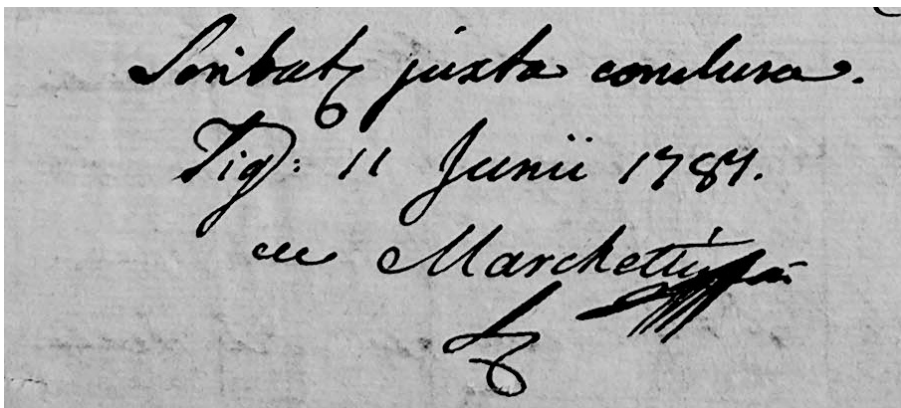 Scribat juxta conclusa.
Tig: 11 Junii 1787.
Marchetti